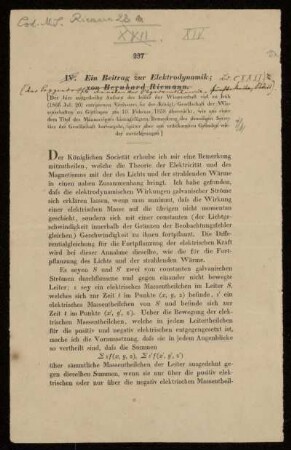 Cod. Ms. Riemann 28
XXII.
XIV
237
IV. Ein Beitrag zur Elektrodynamik;
von Bernhard Riemann.
Der Königlichen Societät erlaube ich mir eine Bemerkung
mitzutheilen, welche die Theorie der Elektricität und des
Magnetismus mit der des Lichts und der strahlenden Wärme
in einen nahen Zusammenhang bringt. Ich habe gefunden,
daß die elektrodynamischen Wirkungen galvanischer Ströme
sich erklären lassen, wenn man annimmt, daß die Wirkung
einer elektrischen Masse auf die übrigen nicht momentan
geschieht, sondern sich mit einer constanten (der Lichtge-
schwindigkeit innerhalb der Gränzen der Beobachtungsfehler
gleichen) Geschwindigkeit zu ihnen fortpflanzt. Die Diffe-
rentialgleichung für die Fortpflanzung der elektrischen Kraft
wird bei dieser Annahme dieselbe, wie die für die Fort-
pflanzung des Lichts und der strahlenden Wärme.
Es seyen S und S′ zwei von constanten galvanischen
Strömen durchflossene und gegen einander nicht bewegte
Leiter; ε sey ein elektrisches Massentheilchen im Leiter S,
welches sich zur Zeit t im Punkte (x, y, z) befinde, ε′ ein
elektrisches Massentheilchen von S′ und befinde sich zur
Zeit t im Punkte (x′, y′, z′). Ueber die Bewegung der elek-
trischen Massentheilchen, welche in jedem Leitertheilchen
für die positiv und negativ elektrischen entgegengesetzt ist,
mache ich die Voraussetzung, daß sie in jedem Augenblicke
so vertheilt sind, daß die Summen
Σεf(x, y, z), Σε′f(x′, y′, z′)
über sämmtliche Massentheilchen der Leiter ausgedehnt ge-
gen dieselben Summen, wenn sie nur über die positiv elek-
trischen oder nur über die negativ elektrischen Massentheil-